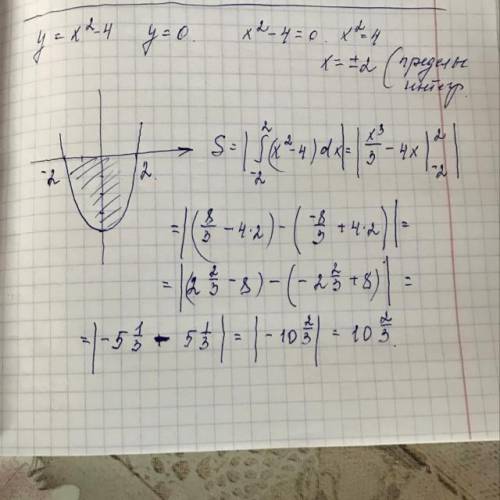 y = x² - 4   y = 0.   x² - 4 = 0.   x² = 4
x = ±2 (пределы
интегр.
-2   2
S = |∫₋₂² (x² - 4) dx| = |x³/3 - 4x|₋₂²|
= |(8/3 - 4·2) - (-8/3 + 4·2)| =
= |(2 2/3 - 8) - (-2 2/3 + 8)| =
= |-5 1/3 - 5 1/3| = |-10 2/3| = 10 2/3.